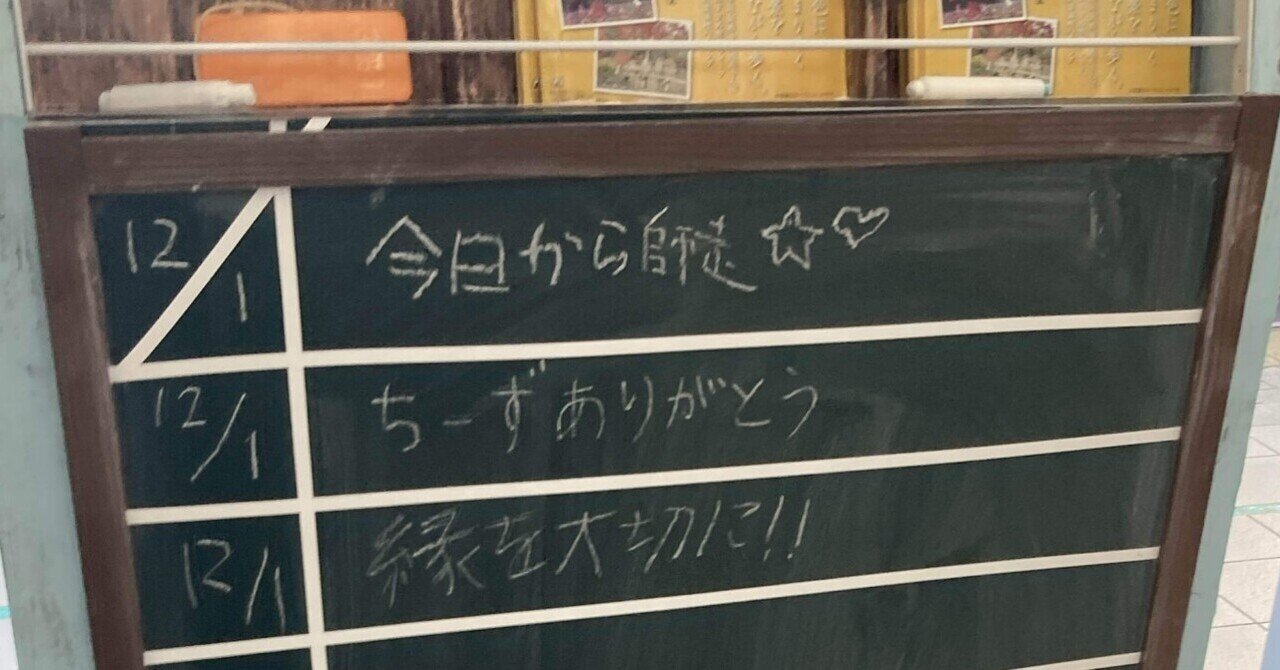 12/1 今日から師走☆♡
12/1 ちーずありがとう
12/1 縁を大切に!!